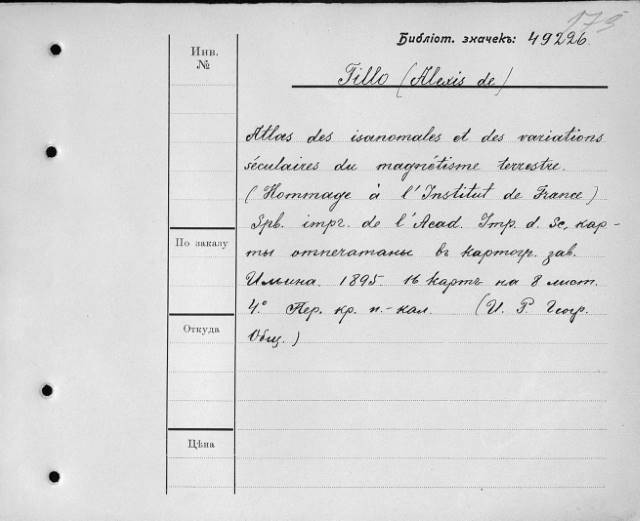 175
Библіот. значекъ: 49226.
Инв.
№
Tillo (Alexis de)
Atlas des isanomales et des variations
séculaires du magnétisme terrestre.
(Hommage à l'Institut de France)
Spb. impr. de l'Acad. Imp. d. Sc, кар-
ты отпечатаны въ картогр. зав.
Ильина. 1895. 16 картъ на 8 лист.
4º Пер. кр. п.-кал. (И. Р. Геогр.
Общ.)
По заказу
Откуда
Цѣна